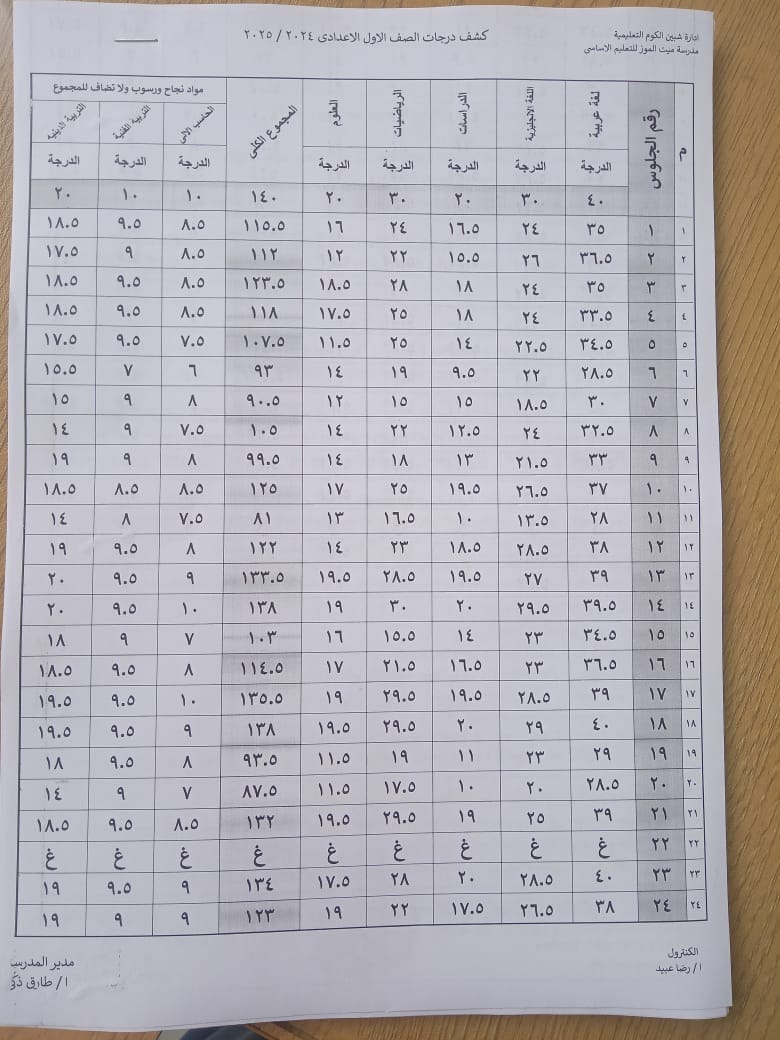 ادارة شبين الكوم التعليمية
مدرسة ميت الموز للتعليم الاساسى
كشف درجات الصف الاول الاعدادى ٢٠٢٤ / ٢٠٢٥
م رقم الجلوس لغة عربية اللغة الانجليزية الدراسات الرياضيات العلوم المجموع الكلى مواد نجاح ورسوب ولا تضاف للمجموع
الحاسب الالى التربية الفنية التربية الدينيه
الدرجة الدرجة الدرجة الدرجة الدرجة الدرجة الدرجة الدرجة
٤٠ ٣٠ ٢٠ ٣٠ ٢٠ ١٤٠ ١٠ ١٠ ٢٠
١ ١ ٣٥ ٢٤ ١٦.٥ ٢٤ ١٦ ١١٥.٥ ٨.٥ ٩.٥ ١٨.٥
٢ ٢ ٣٦.٥ ٢٦ ١٥.٥ ٢٢ ١٢ ١١٢ ٨.٥ ٩ ١٧.٥
٣ ٣ ٣٥ ٢٤ ١٨ ٢٨ ١٨.٥ ١٢٣.٥ ٨.٥ ٩.٥ ١٨.٥
٤ ٤ ٣٣.٥ ٢٤ ١٨ ٢٥ ١٧.٥ ١١٨ ٨.٥ ٩.٥ ١٨.٥
٥ ٥ ٣٤.٥ ٢٢.٥ ١٤ ٢٥ ١١.٥ ١٠٧.٥ ٧.٥ ٩.٥ ١٧.٥
٦ ٦ ٢٨.٥ ٢٢ ٩.٥ ١٩ ١٤ ٩٣ ٦ ٧ ١٥.٥
٧ ٧ ٣٠ ١٨.٥ ١٥ ١٥ ١٢ ٩٠.٥ ٨ ٩ ١٥
٨ ٨ ٣٢.٥ ٢٤ ١٢.٥ ٢٢ ١٤ ١٠٥ ٧.٥ ٩ ١٤
٩ ٩ ٣٣ ٢١.٥ ١٣ ١٨ ١٤ ٩٩.٥ ٨ ٩ ١٩
١٠ ١٠ ٣٧ ٢٦.٥ ١٩.٥ ٢٥ ١٧ ١٢٥ ٨.٥ ٨.٥ ١٨.٥
١١ ١١ ٢٨ ١٣.٥ ١٠ ١٦.٥ ١٣ ٨١ ٧.٥ ٨ ١٤
١٢ ١٢ ٣٨ ٢٨.٥ ١٨.٥ ٢٣ ١٤ ١٢٢ ٨ ٩.٥ ١٩
١٣ ١٣ ٣٩ ٢٧ ١٩.٥ ٢٨.٥ ١٩.٥ ١٣٣.٥ ٩ ٩.٥ ٢٠
١٤ ١٤ ٣٩.٥ ٢٩.٥ ٢٠ ٣٠ ١٩ ١٣٨ ١٠ ٩.٥ ٢٠
١٥ ١٥ ٣٤.٥ ٢٣ ١٤ ١٥.٥ ١٦ ١٠٣ ٧ ٩ ١٨
١٦ ١٦ ٣٦.٥ ٢٣ ١٦.٥ ٢١.٥ ١٧ ١١٤.٥ ٨ ٩.٥ ١٨.٥
١٧ ١٧ ٣٩ ٢٨.٥ ١٩.٥ ٢٩.٥ ١٩ ١٣٥.٥ ١٠ ٩.٥ ١٩.٥
١٨ ١٨ ٤٠ ٢٩ ٢٠ ٢٩.٥ ١٩.٥ ١٣٨ ٩ ٩.٥ ١٩.٥
١٩ ١٩ ٢٩ ٢٣ ١١ ١٩ ١١.٥ ٩٣.٥ ٨ ٩.٥ ١٨
٢٠ ٢٠ ٢٨.٥ ٢٠ ١٠ ١٧.٥ ١١.٥ ٨٧.٥ ٧ ٩ ١٤
٢١ ٢١ ٣٩ ٢٥ ١٩ ٢٩.٥ ١٩.٥ ١٣٢ ٨.٥ ٩.٥ ١٨.٥
٢٢ ٢٢ غ غ غ غ غ غ غ غ غ
٢٣ ٢٣ ٤٠ ٢٨.٥ ٢٠ ٢٨ ١٧.٥ ١٣٤ ٩ ٩.٥ ١٩
٢٤ ٢٤ ٣٨ ٢٦.٥ ١٧.٥ ٢٢ ١٩ ١٢٣ ٩ ٩ ١٩
الكنترول
ا/ رضا عبيد
مدير المدرسـ
ا/ طارق